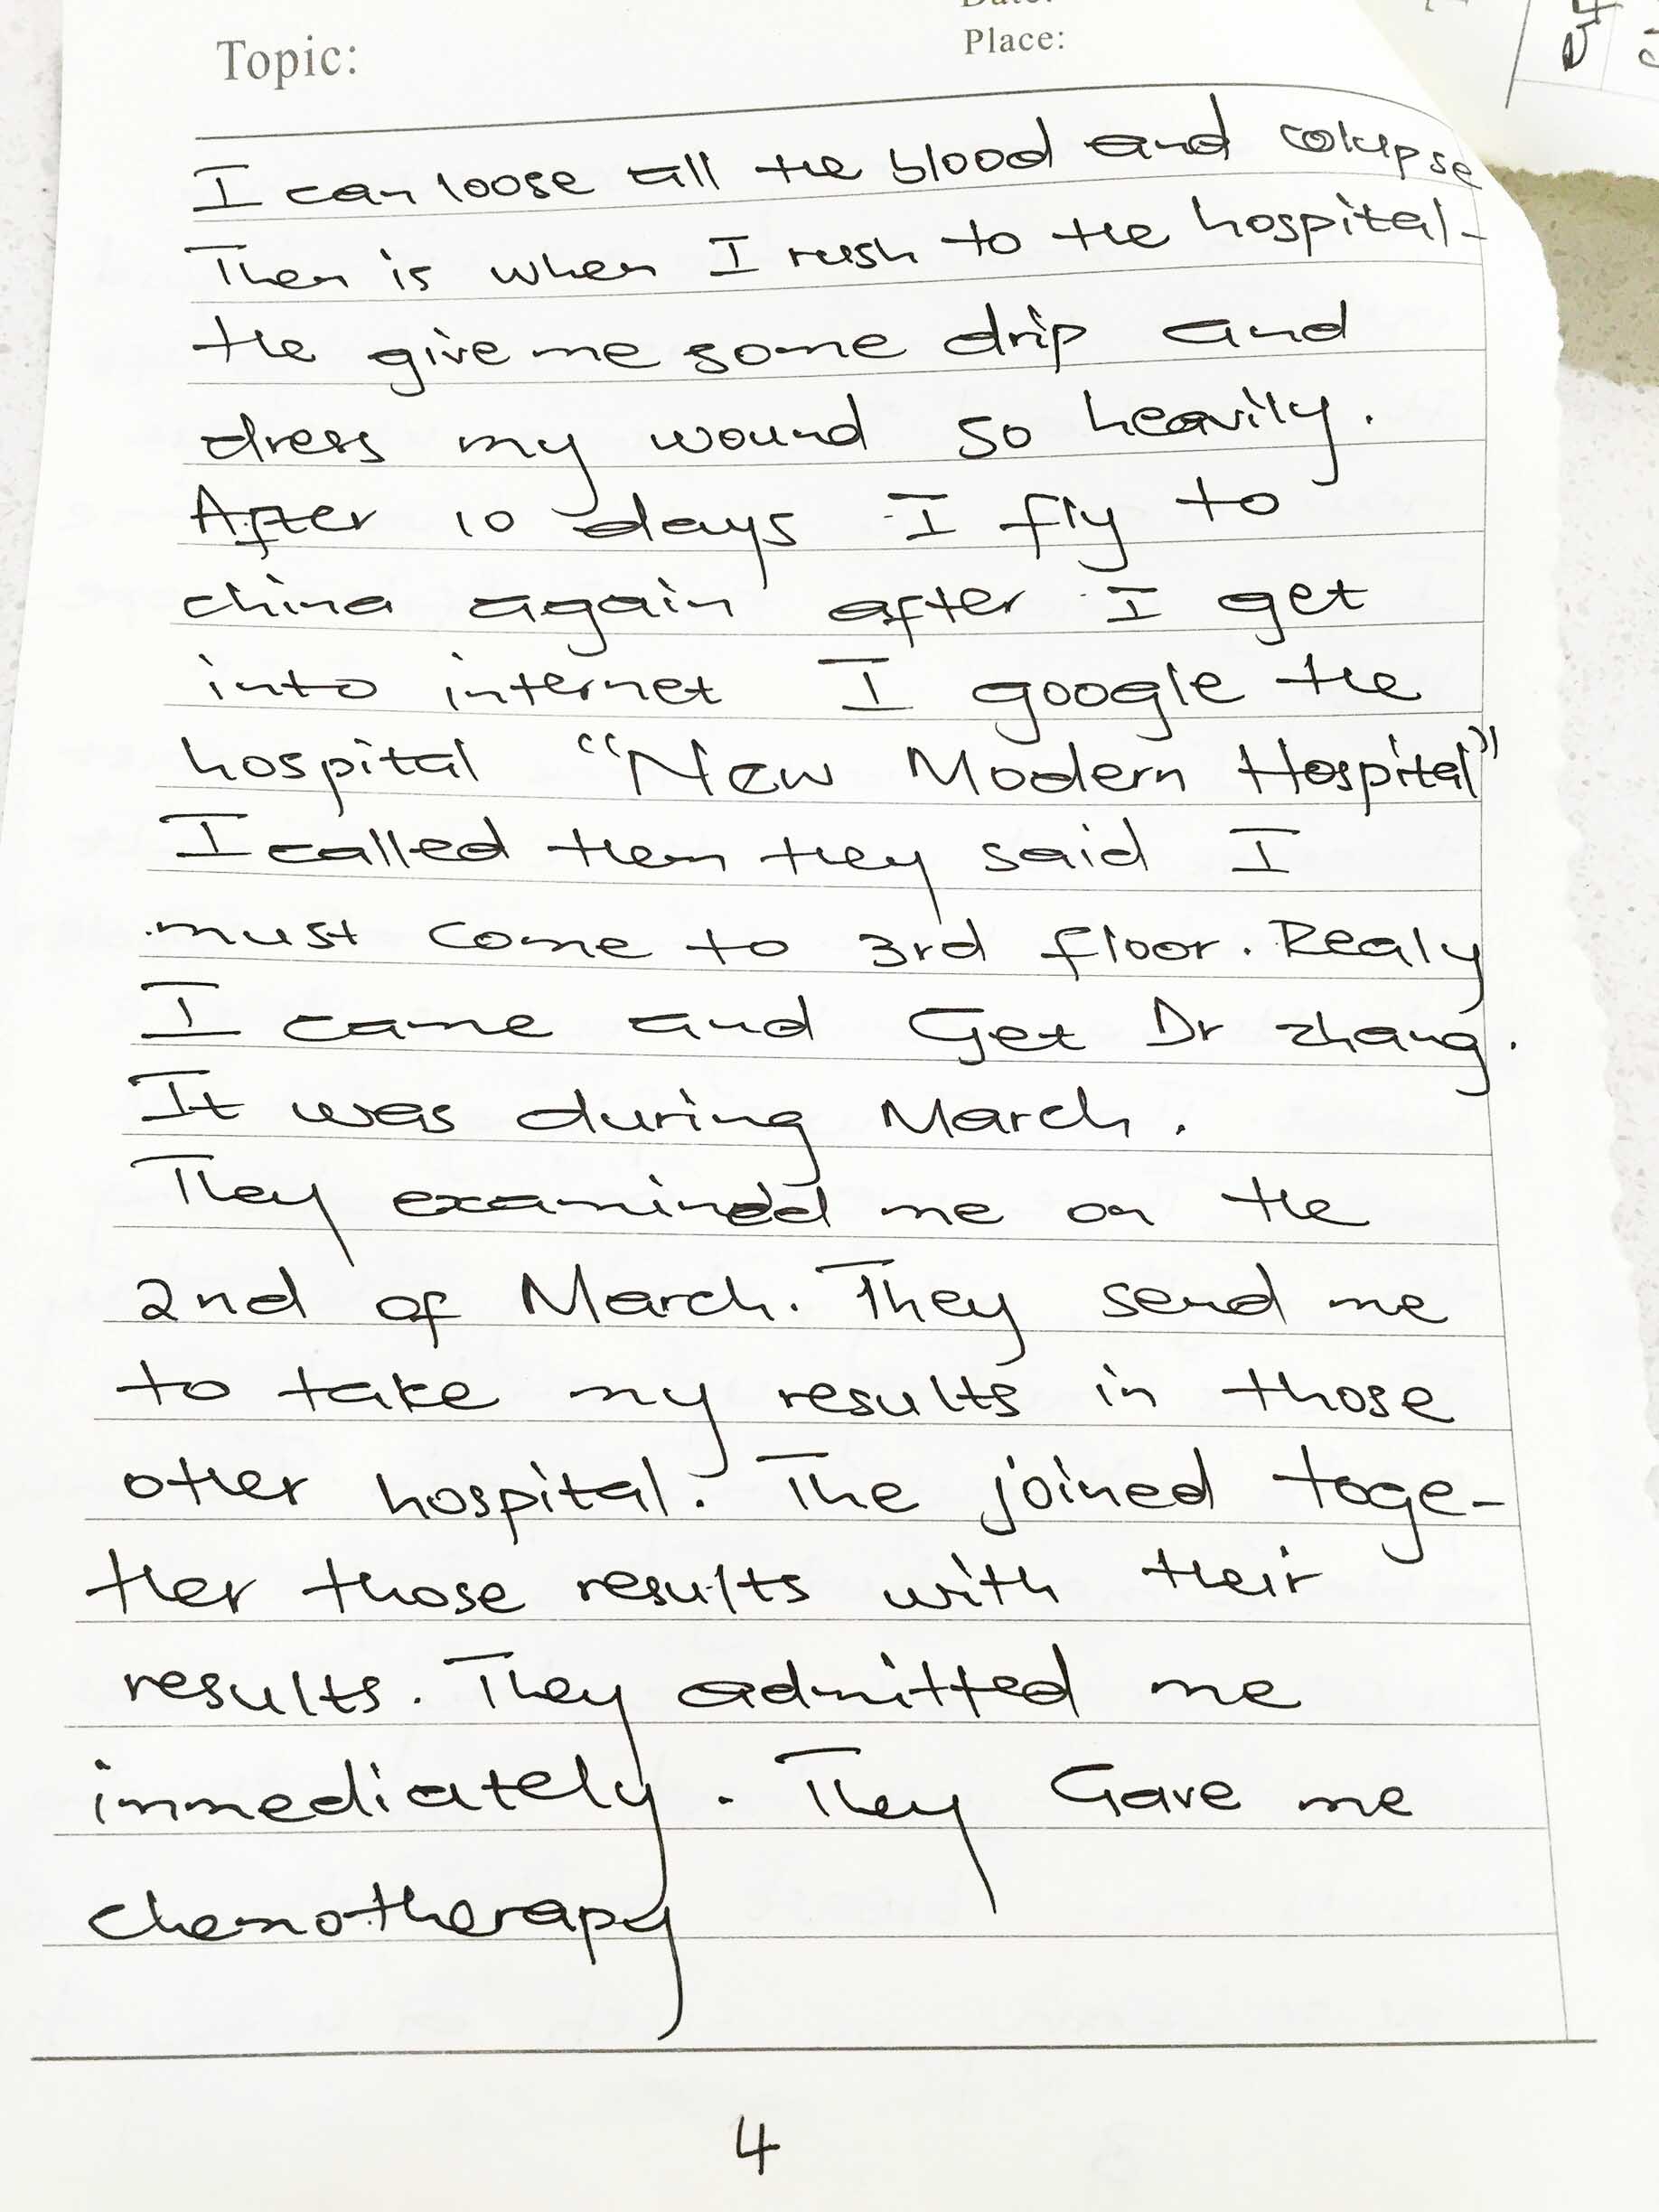 Place:
Topic:
I can loose all the blood and colapse
Then is when I rush to the hospital-
the give me some drip and
dress my wound so heavily.
After 10 days I fly to
china again after I get
into internet I google the
hospital "New Modern Hospital"
I called them they said I
must come to 3rd floor. Realy
I came and Get Dr zhang.
It was during March.
They examined me on the
2nd of March. They send me
to take my results in those
other hospital. The joined toge-
ther those results with their
results. They admitted me
immediately. They Gave me
chemotherapy
4